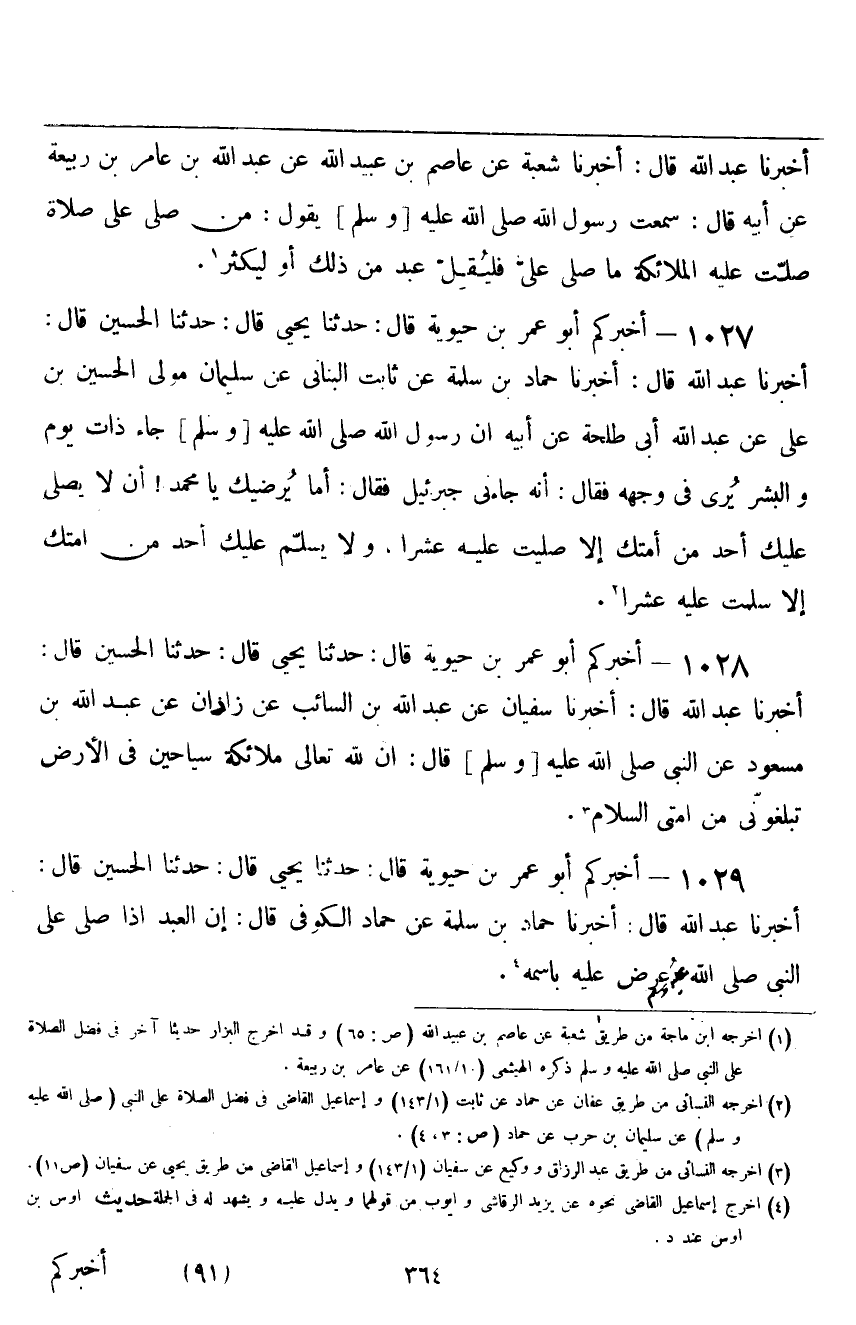 أخبرنا عبد الله قال : أخبرنا شعبة عن عاصم بن عبيد الله عن عبد الله بن عامر بن ربيعة
عن أبيه قال : سمعت رسول الله صلى الله عليه [ و سلم ] يقول : من صلى على صلاة
صلّت عليه الملائكة ما صلى علىّ فليُقيل عبد من ذلك أو ليكثر١ .
١٠٢٧ – أخبركم أبو عمر بن حيوية قال : حدثنا يحيى قال : حدثنا الحسين قال :
أخبرنا عبد الله قال : أخبرنا حماد بن سلمة عن ثابت البنانى عن سليمان مولى الحسين بن
على عن عبد الله أبى طلحة عن أبيه ان رسول الله صلى الله عليه [ و سلم ] جاء ذات يوم
و البشر يُرى فى وجهه فقال : أنه جاءنى جبرئيل فقال : أما يُرضيك يا محمد ! أن لا يصلى
عليك أحد من أمتك إلا صليت عليه عشرا ، و لا يسلّم عليك أحد من امتك
إلا سلمت عليه عشرا٢ .
١٠٢٨ – أخبركم أبو عمر بن حيوية قال : حدثنا يحيى قال : حدثنا الحسين قال :
أخبرنا عبد الله قال : أخبرنا سفيان عن عبد الله بن السائب عن زاذان عن عبد الله بن
مسعود عن النبى صلى الله عليه [ و سلم ] قال : ان لله تعالى ملائكة سياحين فى الأرض
تبلغونّى من امتى السلام٣ .
١٠٢٩ – أخبركم أبو عمر بن حيوية قال : حدثنا يحيى قال : حدثنا الحسين قال :
أخبرنا عبد الله قال : أخبرنا حماد بن سلمة عن حماد الكوفى قال : إن العبد اذا صلى على
النبى صلى الله عُرض عليه باسمه٤ .
(١) اخرجه ابن ماجة من طريق شعبة عن عاصم بن عبيد الله ( ص : ٦٥ ) و قد اخرج البزار حديثا آخر فى فضل الصلاة
على النبى صلى الله عليه و سلم ذكره الهيثمى (١٦١/١٠) عن عامر بن ربيعة .
(٢) اخرجه النسائى من طريق عفان عن حماد عن ثابت (١٤٣/١) و إسماعيل القاضى فى فضل الصلاة على النبى ( صلى الله عليه
و سلم ) عن سليمان بن حرب عن حماد ( ص : ٣ ، ٤ ) .
(٣) اخرجه النسائى من طريق عبد الرزاق و وكيع عن سفيان (١٤٣/١) و إسماعيل القاضى من طريق يحيى عن سفيان (ص١١) .
(٤) اخرج إسماعيل القاضى نحوه عن يزيد الرقاشى و ايوب من قولهما و يدل عليه و يشهد له فى الجملة حديث اوس بن
اوس عند د .
٣٦٤ (٩١) أخبركم